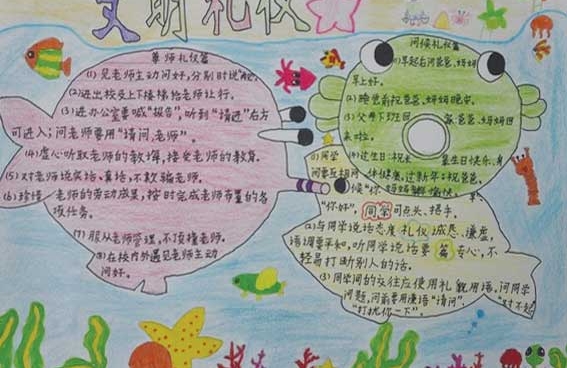 文明礼仪
尊师礼仪篇
(1)见老师主动问好,分别时说
(2)进出校及上下楼梯给老师让行。
(3)进办公室要喊“报告”,听到“请进”后方
可进入;问老师要用“请问,老师”。
(4)虚心听取老师的教导,接受老师的教育。
(5)对老师说实话、真话,不欺骗老师。
(6)珍惜老师的劳动成果,按时完成老师布置的各
项任务。
(7)服从老师管理,不顶撞老师。
(8)在校内外遇见老师主动
问好。
问候礼仪篇
(1)早起后问爸爸、妈妈
早上好。
(2)晚睡前祝爸爸、妈妈晚安。
(3)父母下班回 爸爸、妈妈回
来啦。
(4)过生日:祝 生日快乐、身
体健康。过新年:祝爸爸
妈妈新年愉快。
(1)同学
间要互相问
候“你
“你好”,同学可点头、招手。
(2)与同学说话态度礼仪诚恳、谦虚,
语调要平和,听同学说话要篇专心,不
轻易打断别人的话。
(3)同学间的交往应使用礼貌用语,问同学
问题,问前要用谦语“请问”、“对不起
“打扰你一下”。